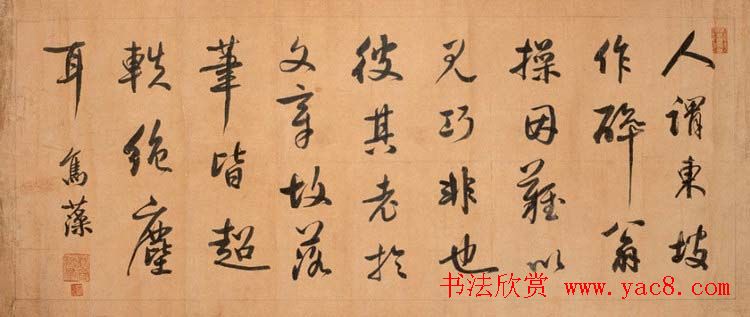 人謂東坡
作醉翁
操因難以
見巧非也
彼其老於
文章故落
筆皆超
軼絶塵
耳
為藻
书法欣赏 www.yac8.com